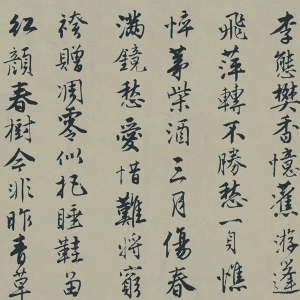 李態樊香憶舊遊蓬
飛萍轉不勝愁一身憔
悴茅柴酒三月傷春
滿鏡愁愛惜難將窮
袴贈凋零似把睡鞋留
紅顏春樹今非昨青草